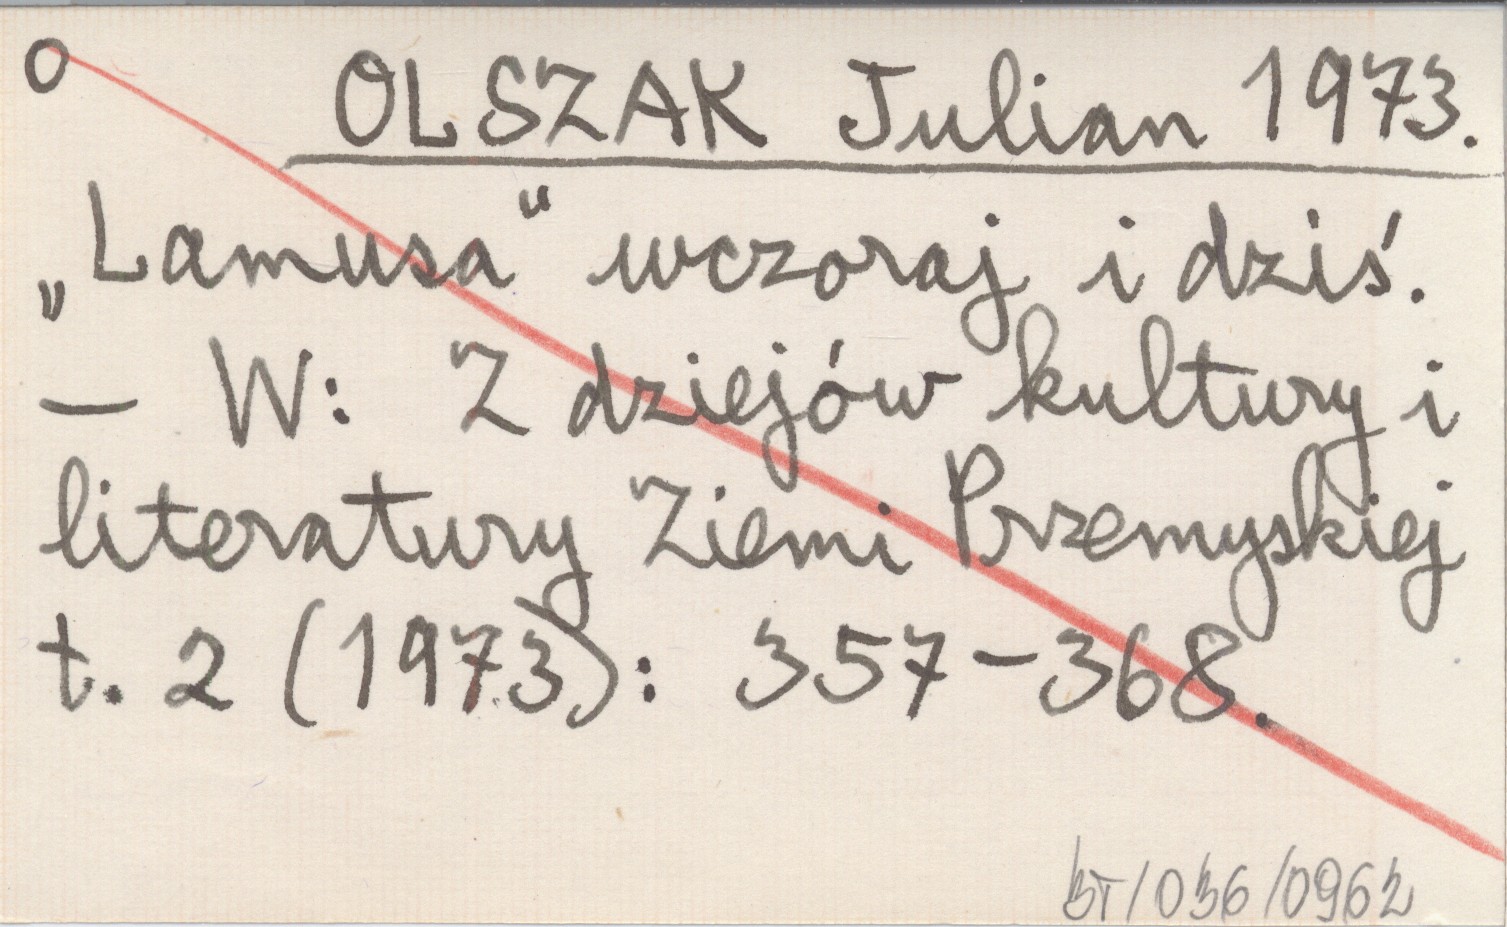 O OLSZAK Julian 1973.
„Lamusa“ wczoraj i dziś.
— W: Z dziejów kultury i
literatury Ziemi Przemyskiej
t. 2 (1973): 357-368.
/036/0962